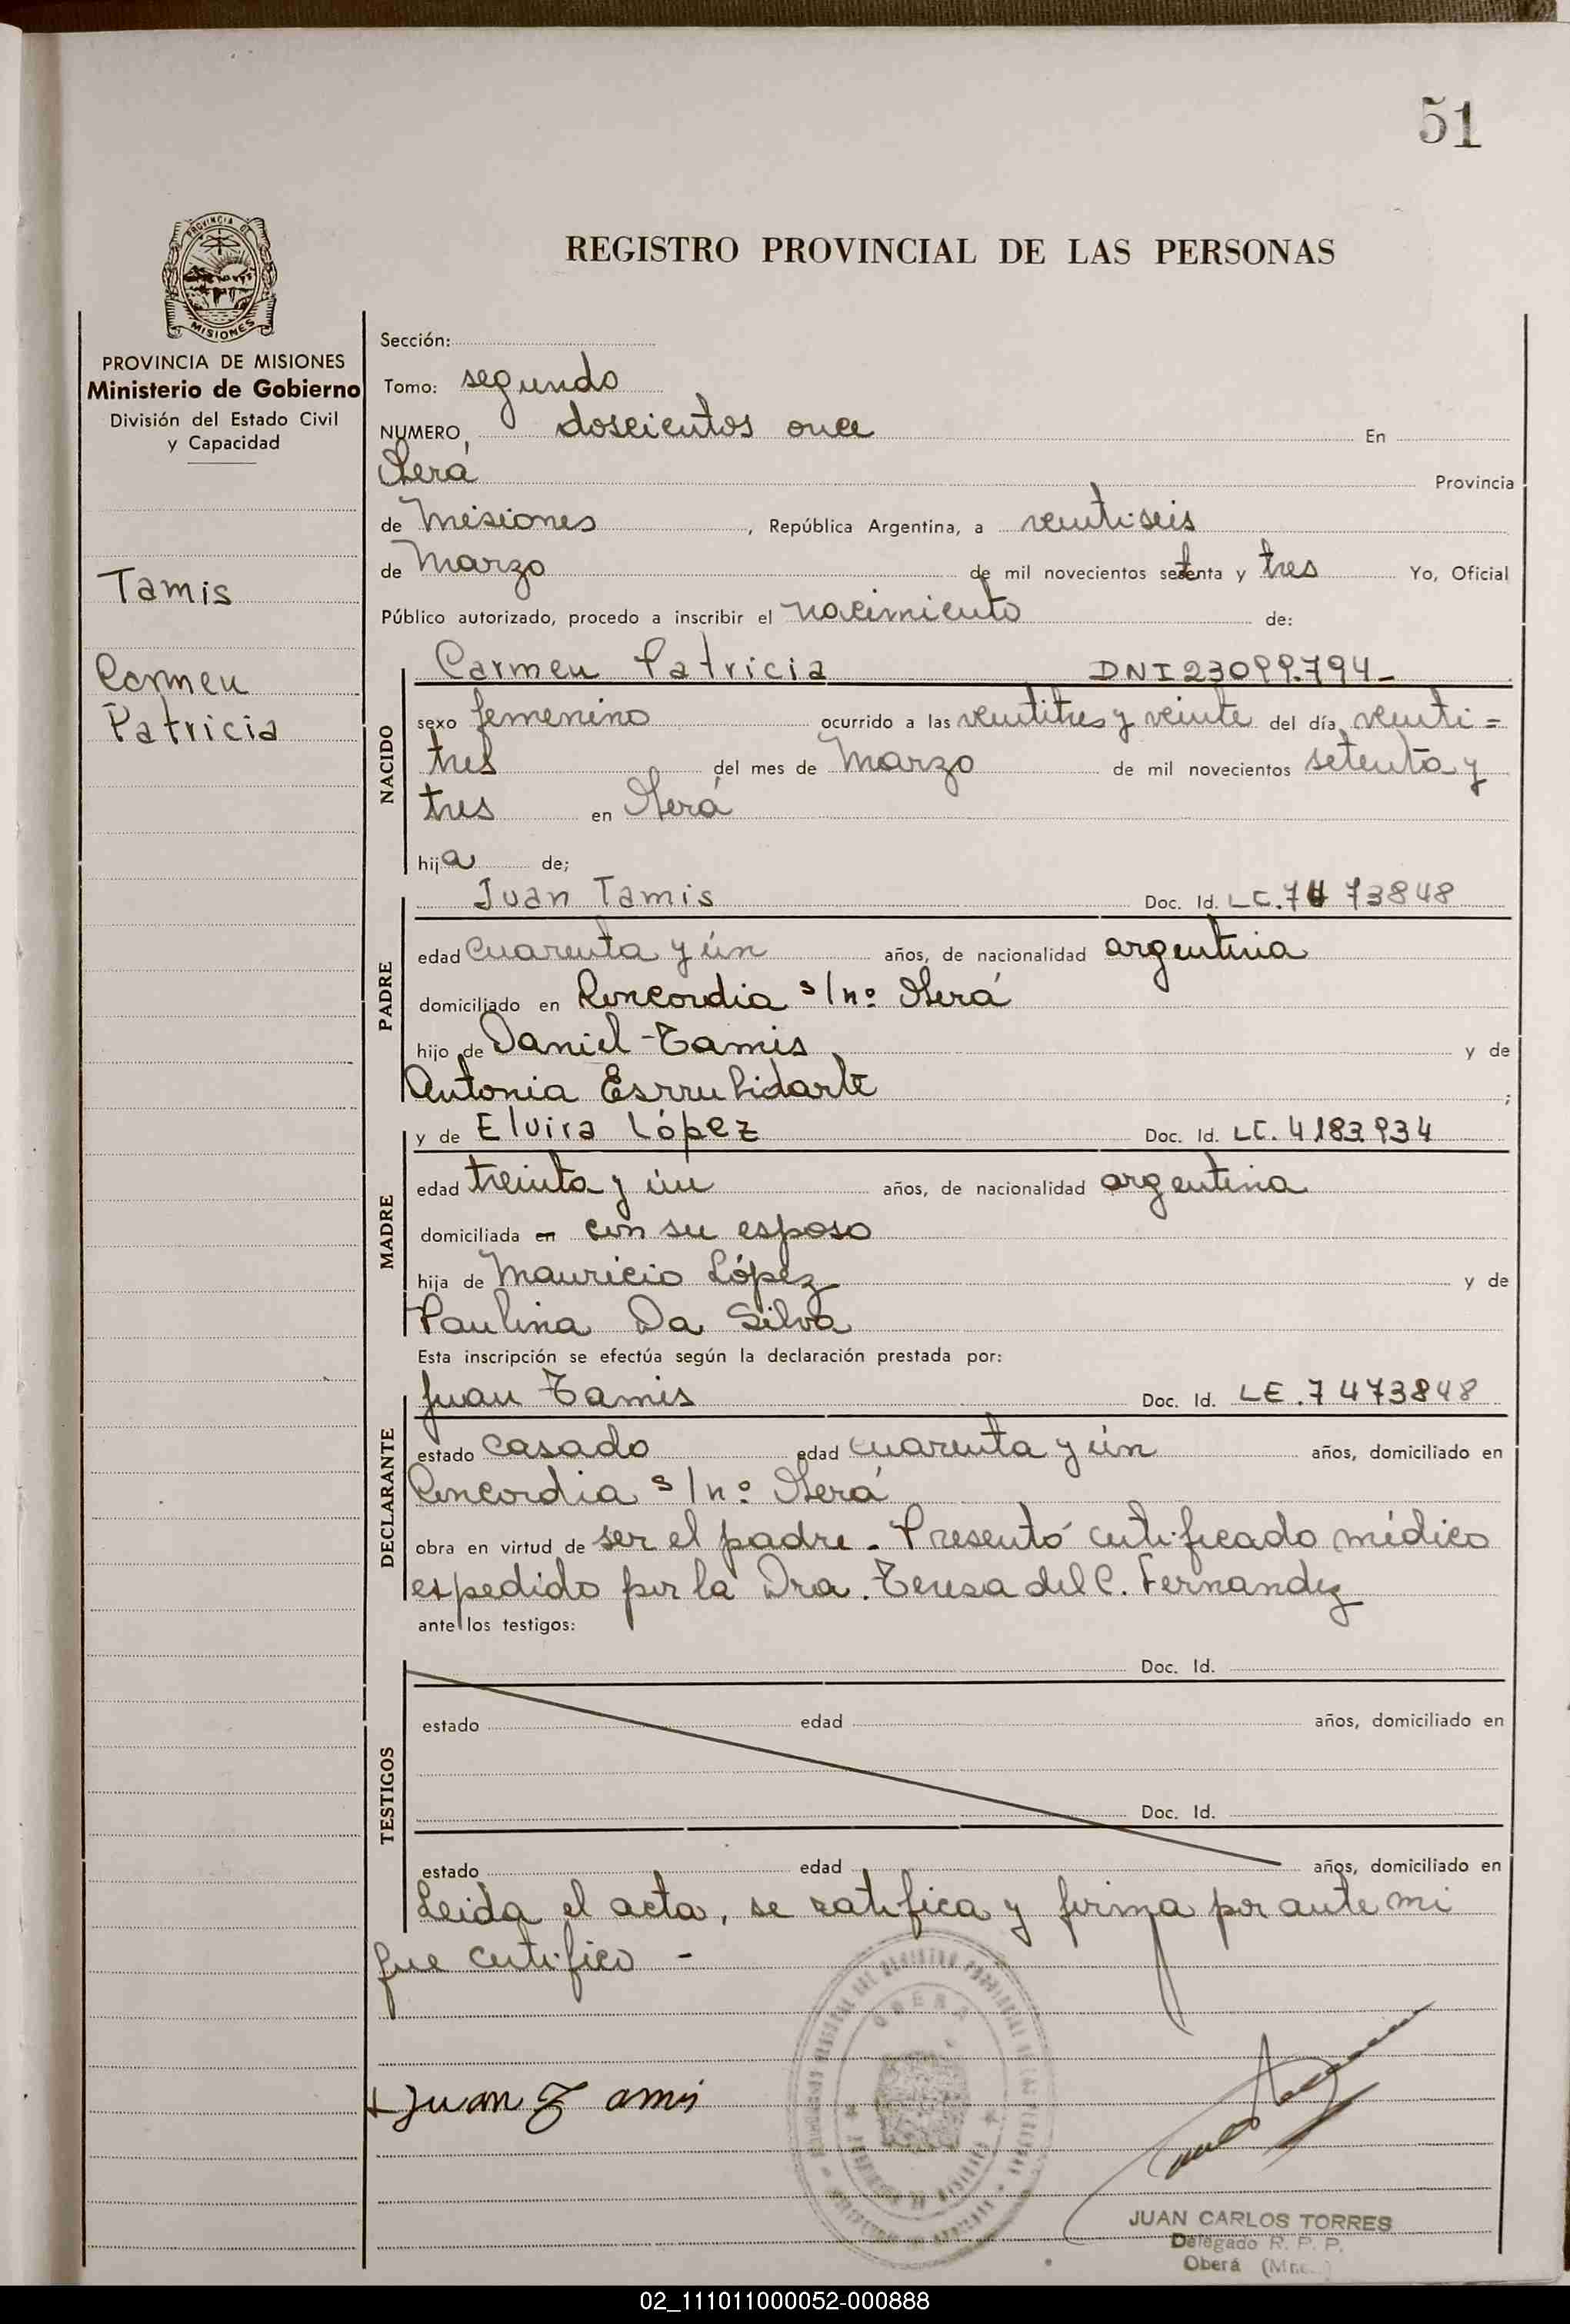 51
PROVINCIA DE
MISIONES
REGISTRO PROVINCIAL DE LAS PERSONAS
PROVINCIA DE MISIONES
Ministerio de Gobierno
División del Estado Civil
y Capacidad
Tamis
Carmen
Patricia
Sección:
Tomo: segundo
NUMERO, doscientos once En
Oberá Provincia
de Misiones, República Argentina, a veintiseis
de Marzo de mil novecientos setenta y tres Yo, Oficial
Público autorizado, procedo a inscribir el nacimiento de:
NACIDO
Carmen Patricia DNI 23099.794-
sexo femenino ocurrido a las ventitres y veinte del día venti=
tres del mes de Marzo de mil novecientos setenta y
tres en Oberá
hija de;
PADRE
Juan Tamis Doc. Id. 7473848
edad cuarenta y ún años, de nacionalidad argentina
domiciliado en Concordia s/nº Oberá
hijo de Daniel Tamis y de
Antonia ;
MADRE
y de Elvira López Doc. Id. LC. 4183934
edad treinta y ún años, de nacionalidad argentina
domiciliada en con su esposo
hija de Mauricio López y de
Paulina Da Silva
Esta inscripción se efectúa según la declaración prestada por:
DECLARANTE
Juan Tamis Doc. Id. LE. 7473848
estado casado edad cuarenta y ún años, domiciliado en
Concordia s/nº Oberá
obra en virtud de ser el padre. Presentó certificado médico
espedido por la Dra. Teresa del C. Fernandez
ante los testigos:
TESTIGOS
Doc. Id.
estado edad años, domiciliado en
Doc. Id.
estado edad años, domiciliado en
Leida el acta, se ratifica y firma por ante mi
que certifico -
Juan Tamis
OBERA
JUAN CARLOS TORRES
Delegado R. P. P.
Oberá
02_111011000052-000888